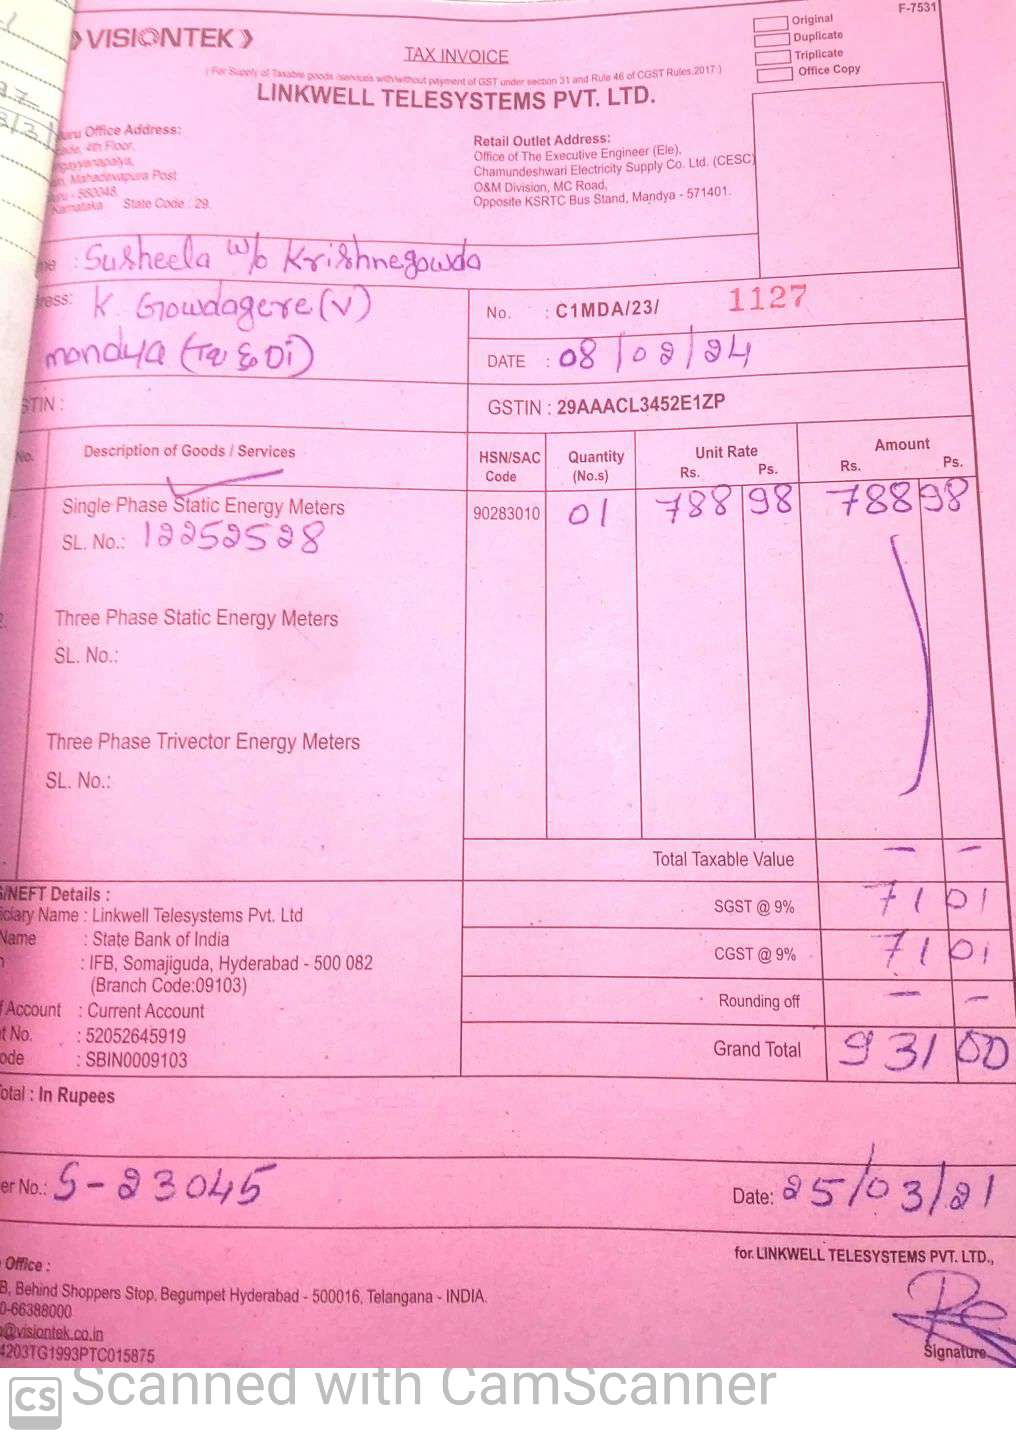 F-7531
VISIONTEK
TAX INVOICE
Original
Duplicate
Triplicate
Office Copy
(For Supply of Taxable goods /services with/without payment of GST under section 31 and Rule 46 of CGST Rules.2017)
LINKWELL TELESYSTEMS PVT. LTD.
Office Address:
4th Floor,
Mahadevapura Post
- 560048.
Karnataka State Code : 29.
Retail Outlet Address:
Office of The Executive Engineer (Ele),
Chamundeshwari Electricity Supply Co. Ltd. (CESC)
O&M Division, MC Road,
Opposite KSRTC Bus Stand, Mandya - 571401.
: Susheela w/o Krishnegowda
K. Gowdagere (V)
mandya (Tq & Di)
No. : C1MDA/23/ 1127
DATE : 08/02/24
GSTIN : 29AAACL3452E1ZP
No. Description of Goods / Services HSN/SAC Code Quantity (No.s) Unit Rate Rs. Ps. Amount Rs. Ps.
Single Phase Static Energy Meters 90283010 01 788 98 788 98
SL. No.: 12252528
Three Phase Static Energy Meters
SL. No.:
Three Phase Trivector Energy Meters
SL. No.:
Total Taxable Value — —
SGST @ 9% 71 01
CGST @ 9% 71 01
Rounding off — —
Grand Total 931 00
/NEFT Details :
Name : Linkwell Telesystems Pvt. Ltd
Name : State Bank of India
: IFB, Somajiguda, Hyderabad - 500 082
(Branch Code:09103)
Account : Current Account
No. : 52052645919
: SBIN0009103
: In Rupees
No.: S-23045
Date: 25/03/21
for. LINKWELL TELESYSTEMS PVT. LTD.,
Office :
B, Behind Shoppers Stop, Begumpet Hyderabad - 500016, Telangana - INDIA.
0-66388000
@visiontek.co.in
4203TG1993PTC015875
Signature
CS Scanned with CamScanner